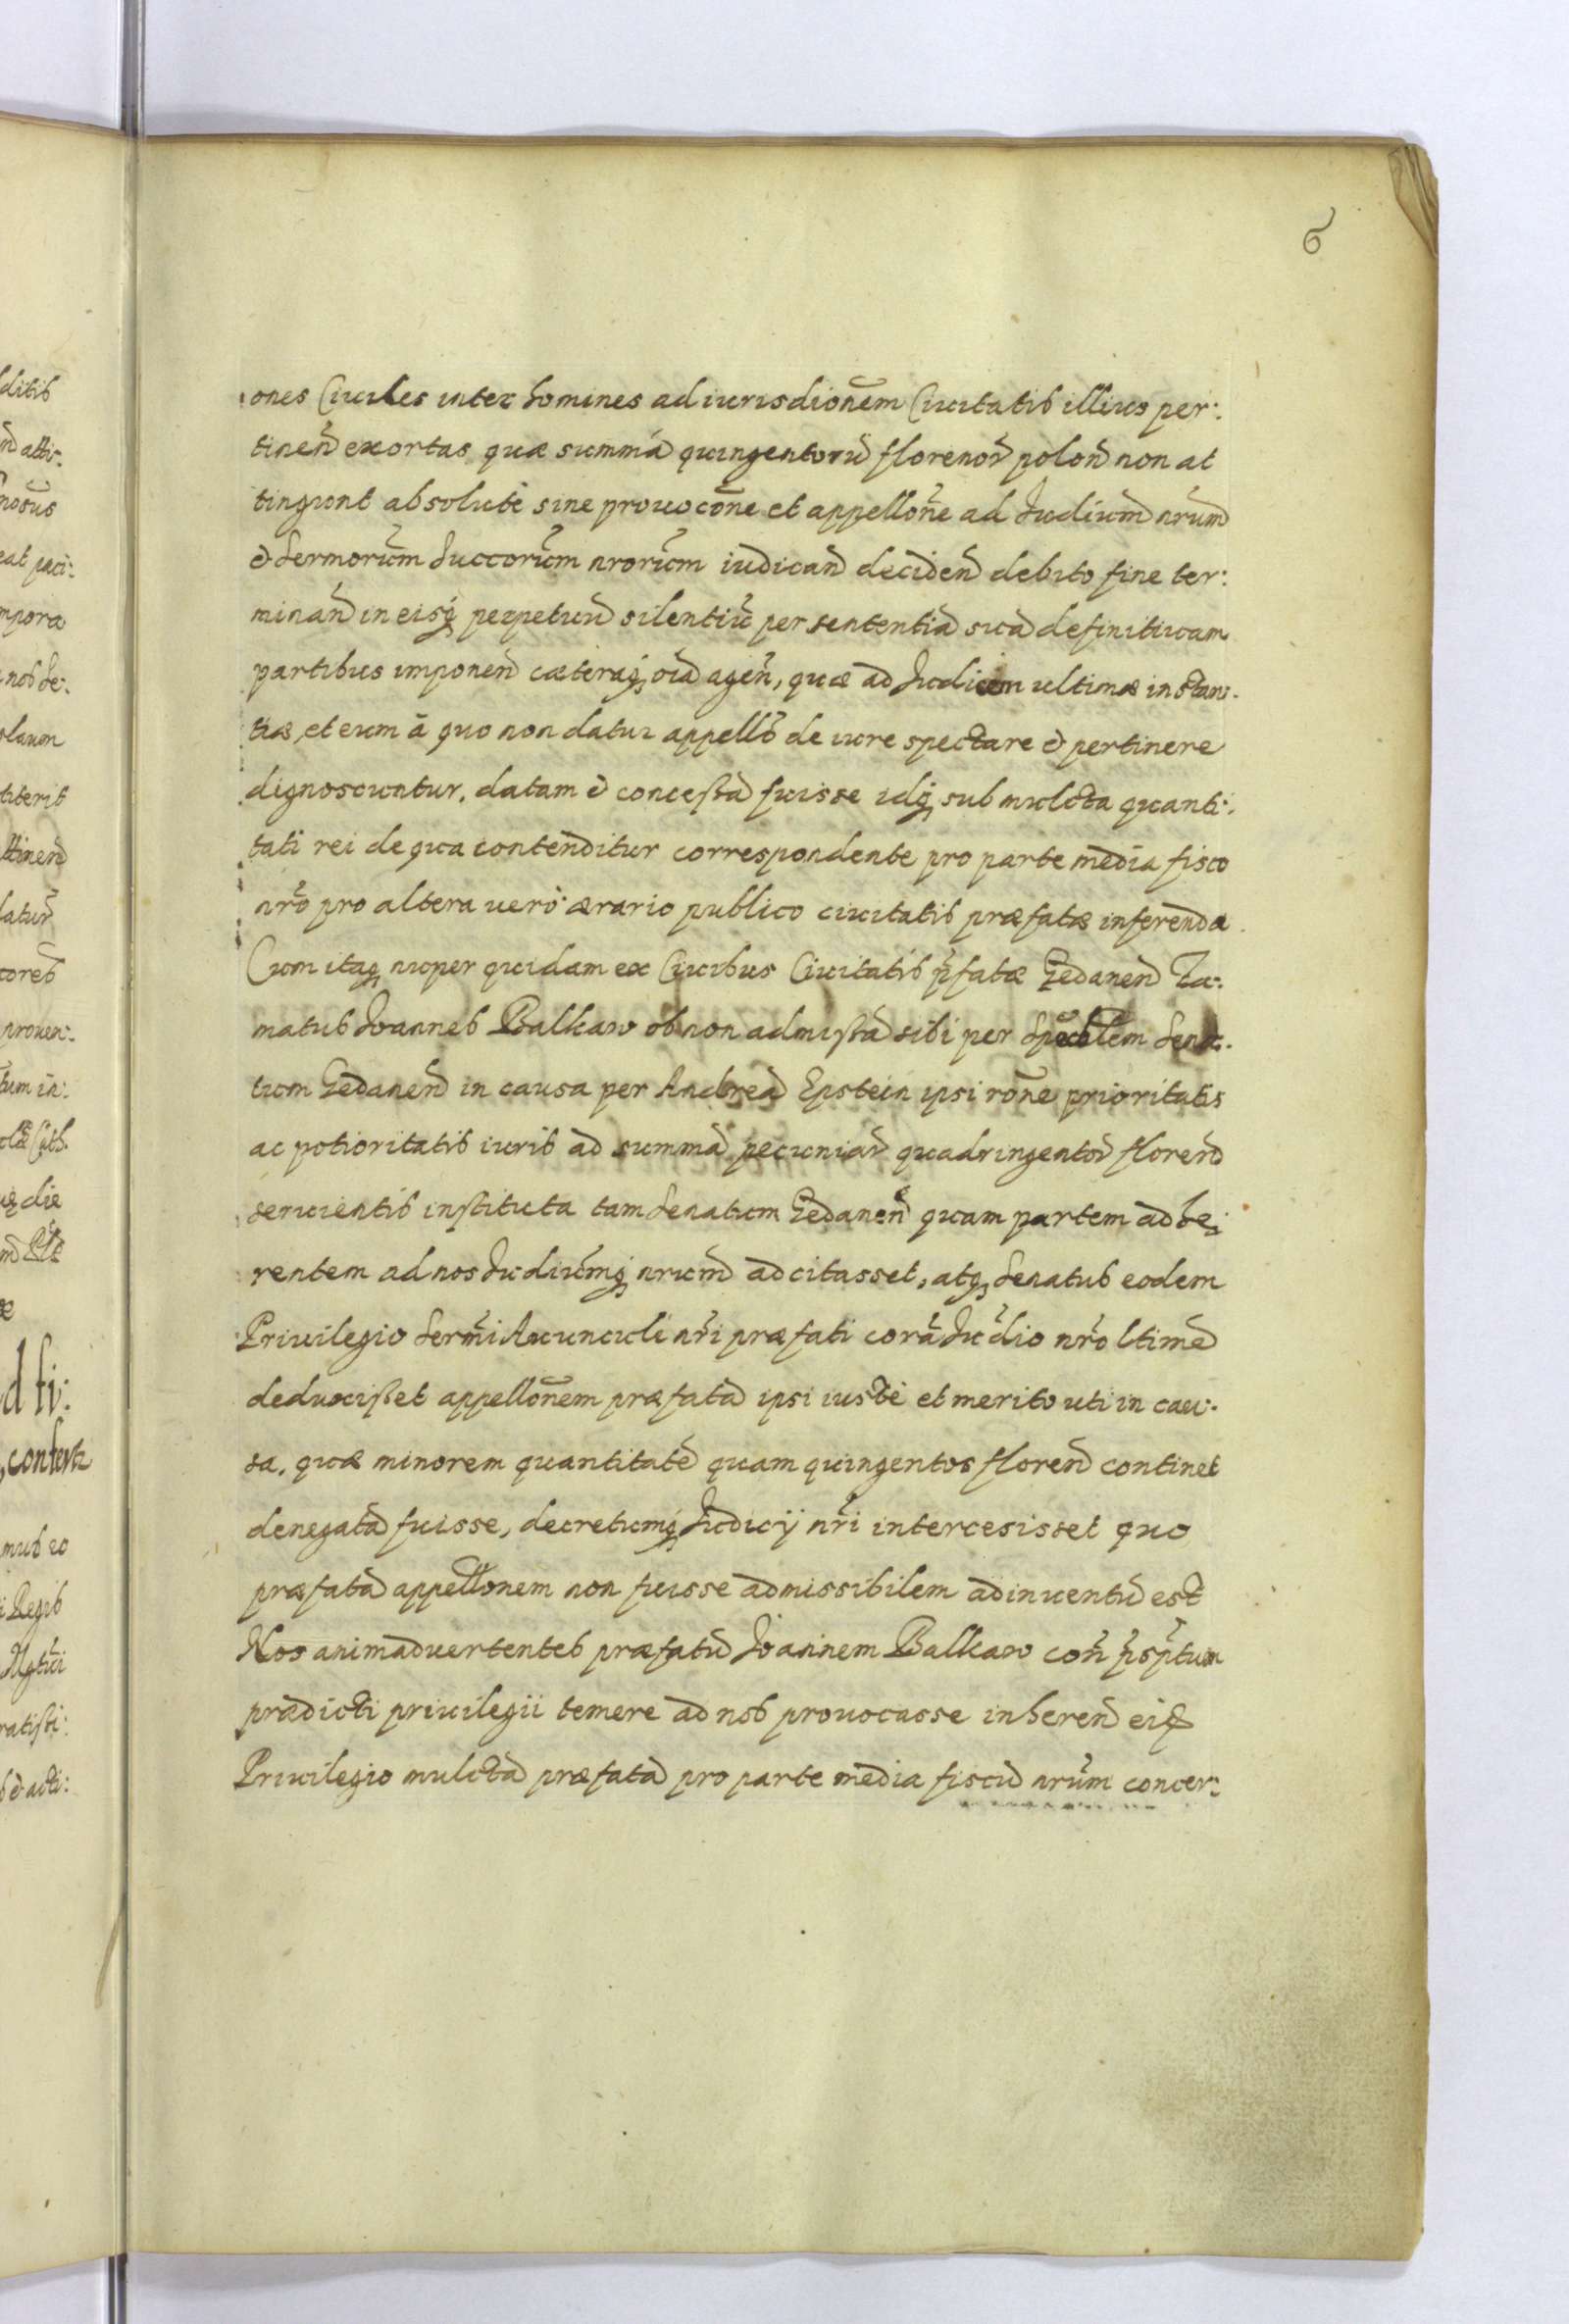 6
ones Ciuiles inter homines ad iurisdiōnem Ciuitatis illius per:
tineñ exortas quæ summā quingentorū florenor̃ poloñ non at
tingunt absolutè sine prouocōne et appellōne ad Iudiciū nrūm
& Sermorūm Succorūm nrorūm iudicañ decideñ debito fine ter:
minañ in eisq; perpetuū silentiū per sententiā suā definitiuam
partibus imponeñ cæteraq; oīa ageñ, quæ ad Iudicem ultimæ instan:
tiæ, et eum à quo non datur appellō de iure spectare & pertinere
dignoscuntur, datam & concessā fuisse idq; sub mulcta quanti:
tati rei de qua contenditur correspondente pro parte media fisco
nr̃o pro altera uerò ærario publico ciuitatis præfatæ inferenda.
Cum itaq; nuper quidam ex Ciuibus Ciuitatis p̃fatæ Gedaneñ Fa:
matus Ioannes Balkaw ob non admissā sibi per Spectblem Sena:
tum Gedaneñ in causa per Andreā Epstein ipsi rōne prioritatis
ac potioritatis iuris ad summā pecuniar̃ quadringentor̃ floreñ
seruientis instituta tam Senatum Gedaneñ quam partem adhe:
rentem ad nos Iudiciūmq; nrūm adcitasset, atq; Senatus eodem
Priuilegio Serm̃i Auunculi nr̃i præfati corā Iudio nr̃o ltimē
deduxisset appellōnem præfatā ipsi iustè et merito uti in cau:
sa, quæ minorem quantitatē quam quingentos floreñ continet
denegatā fuisse, decretumq; Iudicij nr̃i intercesisset quo
præfatā appellōnem non fuisse admissibilem adinuentū est
Nos animaduertentes præfatū Ioannem Balkaw cont̃ p̃sp̃tum
prædicti priuilegii temere ad nos prouocasse inhereñ eid̃
Priuilegio mulctā præfatā pro parte media fiscū nrūm concer: